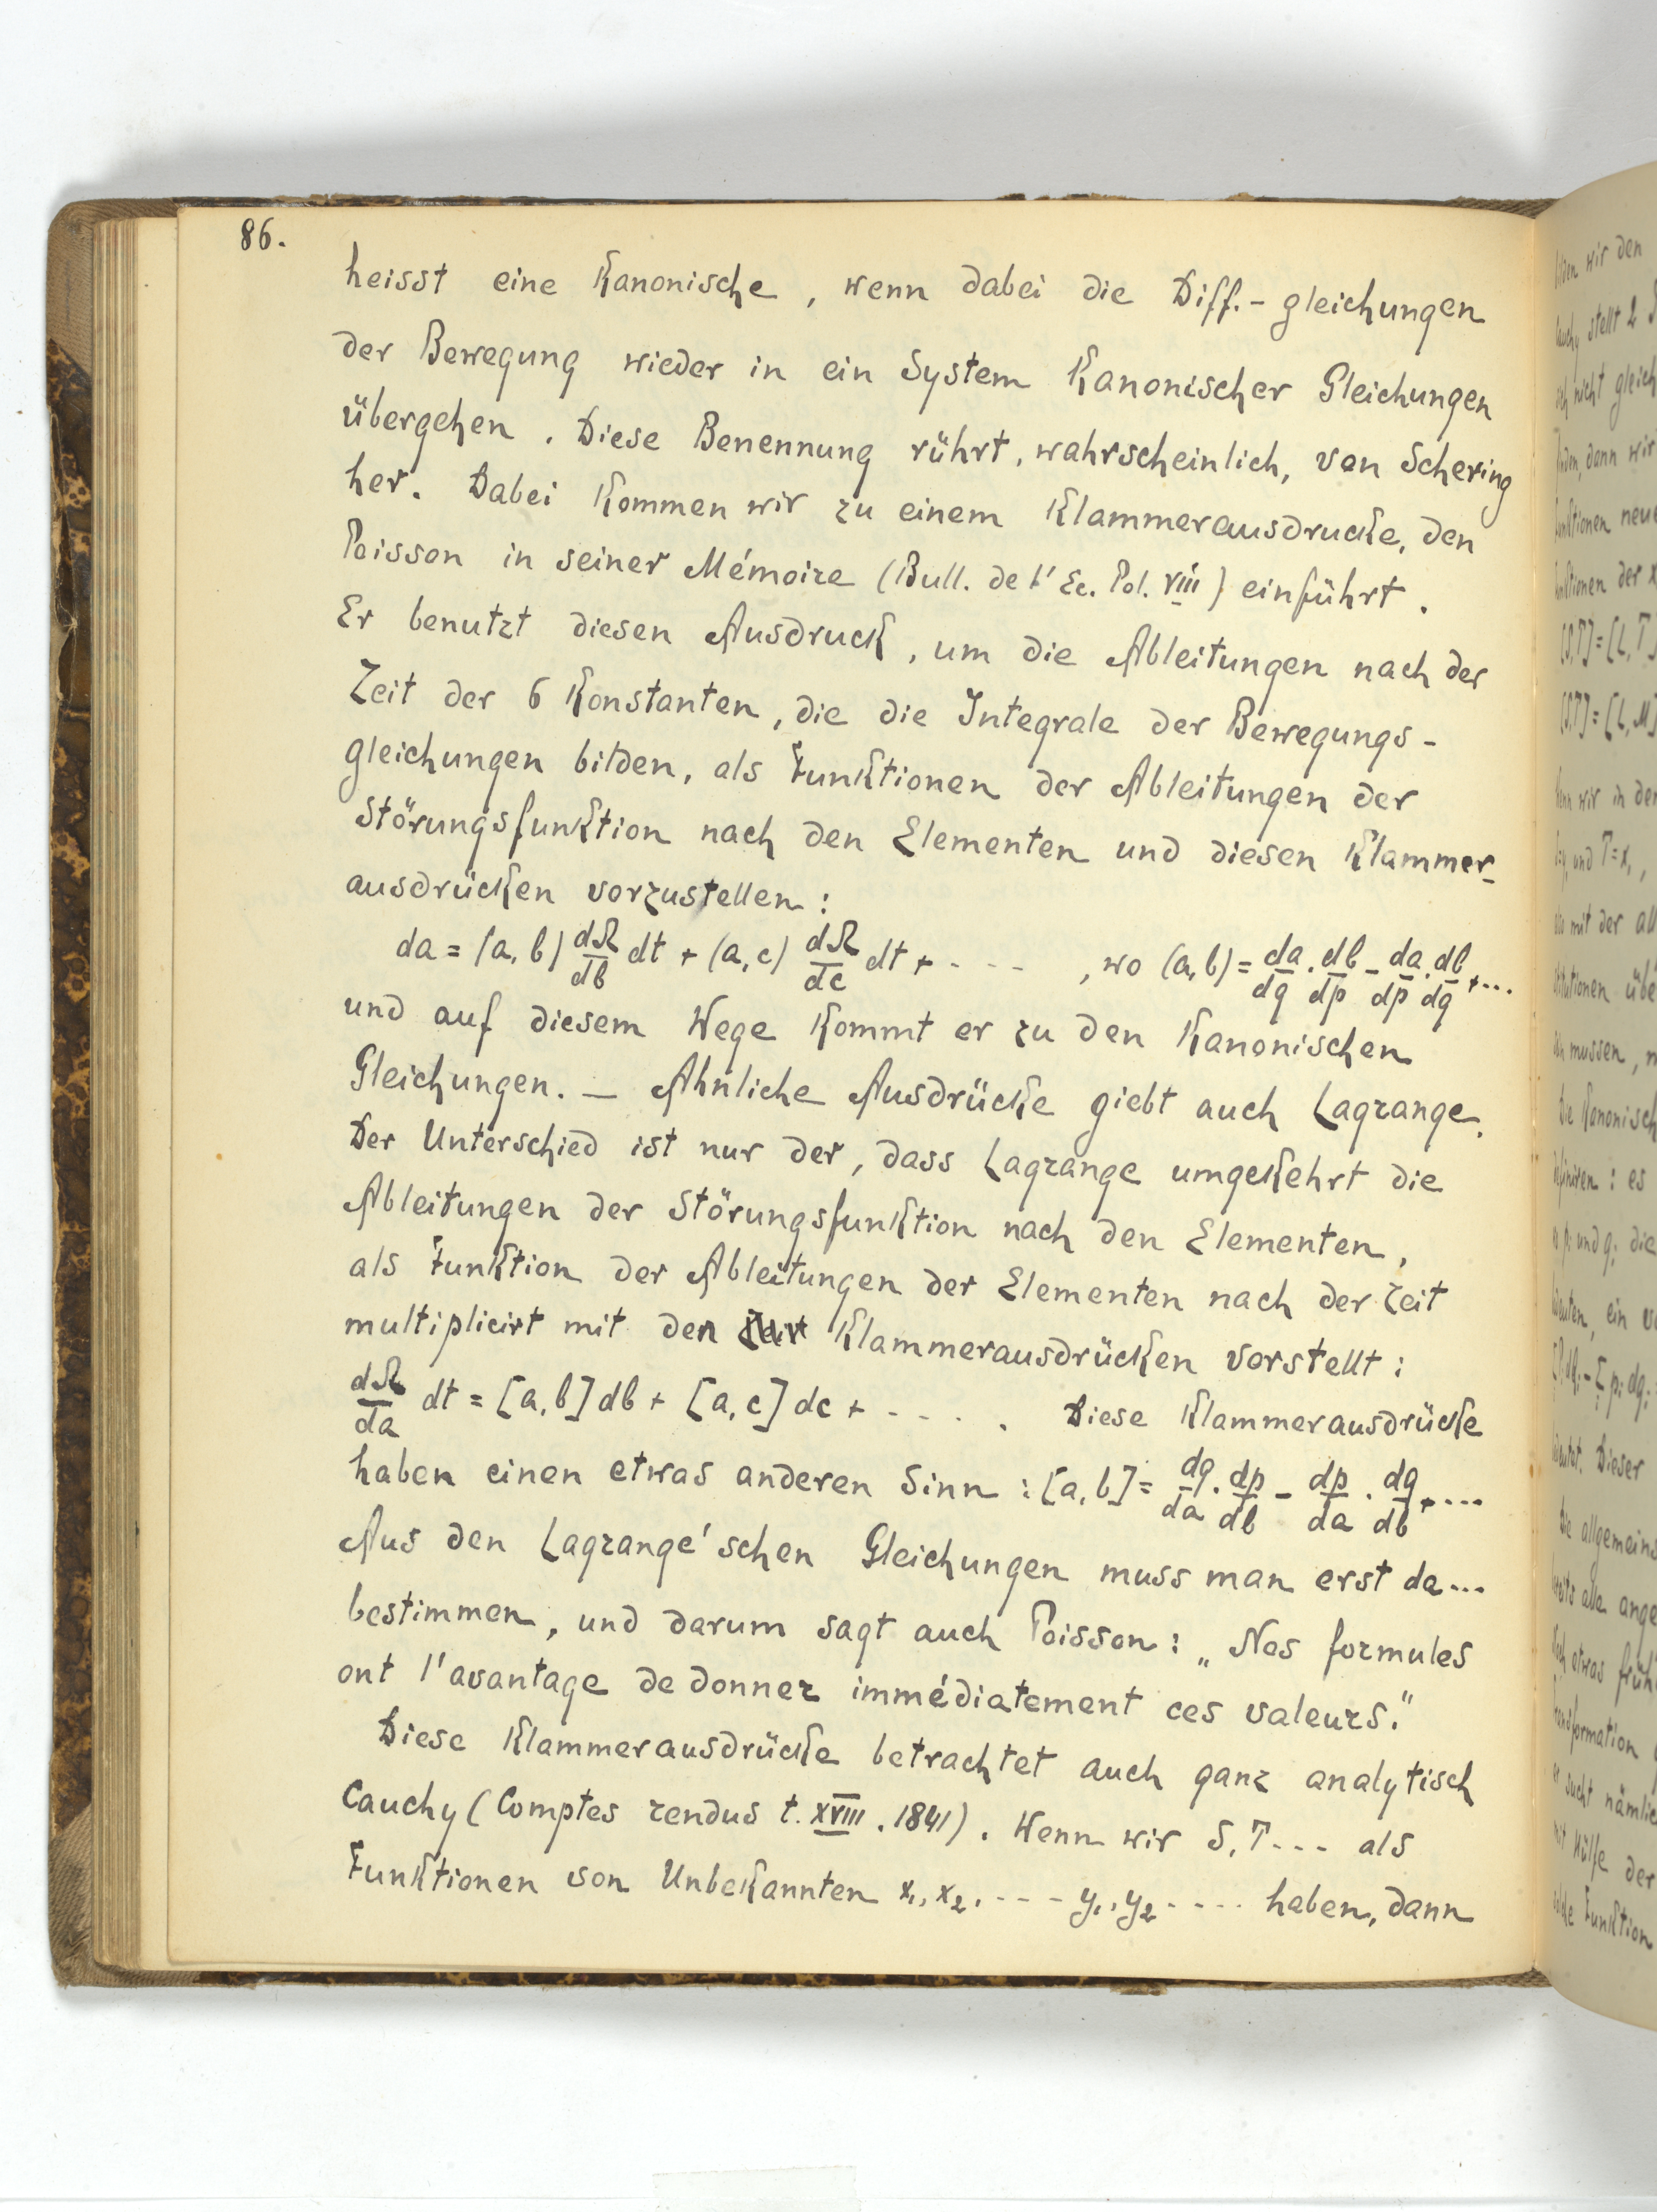 86.
heisst eine kanonische, wenn dabei die Diff.-gleichungen
der Bewegung wieder in ein System kanonischer Gleichungen
übergehen. Diese Benennung rührt, wahrscheinlich, von Schering
her. Dabei kommen wir zu einem Klammerausdrucke, den
Poisson in seiner Mémoire (Bull. de l'Ec. Pol. VIII) einführt.
Er benutzt diesen Ausdruck, um die Ableitungen nach der
Zeit der 6 Konstanten, die die Integrale der Bewegungs-
gleichungen bilden, als Funktionen der Ableitungen der
Störungsfunktion nach den Elementen und diesen Klammer-
ausdrücken vorzustellen:
da = (a,b) dΩ/db dt + (a,c) dΩ/dc dt + - - - , wo (a,b) = da/dq · db/dp - da/dp · db/dq + ...
und auf diesem Wege kommt er zu den kanonischen
Gleichungen. — Ähnliche Ausdrücke giebt auch Lagrange.
Der Unterschied ist nur der, dass Lagrange umgekehrt die
Ableitungen der Störungsfunktion nach den Elementen,
als Funktion der Ableitungen der Elementen nach der Zeit
multiplicirt mit den Klammerausdrücken vorstellt:
dΩ/da dt = [a,b] db + [a,c] dc + - - - . Diese Klammerausdrücke
haben einen etwas anderen Sinn: [a,b] = dq/da · dp/db - dp/da · dq/db + ...
Aus den Lagrange'schen Gleichungen muss man erst da...
bestimmen, und darum sagt auch Poisson: „Nos formules
ont l'avantage de donner immédiatement ces valeurs."
Diese Klammerausdrücke betrachtet auch ganz analytisch
Cauchy (Comptes rendus t. XVIII. 1841). Wenn wir S, T - - - als
Funktionen von Unbekannten x₁, x₂, - - - y₁, y₂ - - - - haben, dann
wir den
stellt 2
nicht gleich
dann wir
der x
[S,T] = [L, T
[S,T] = [L, M]
wir in der
und T = x,
mit der
mussen,
Die kanonisch
: es
und q; die
ein
Dieser
Die allgemeins
alle ange
etwas früh
sucht nämlic
Hülfe der
Funktion